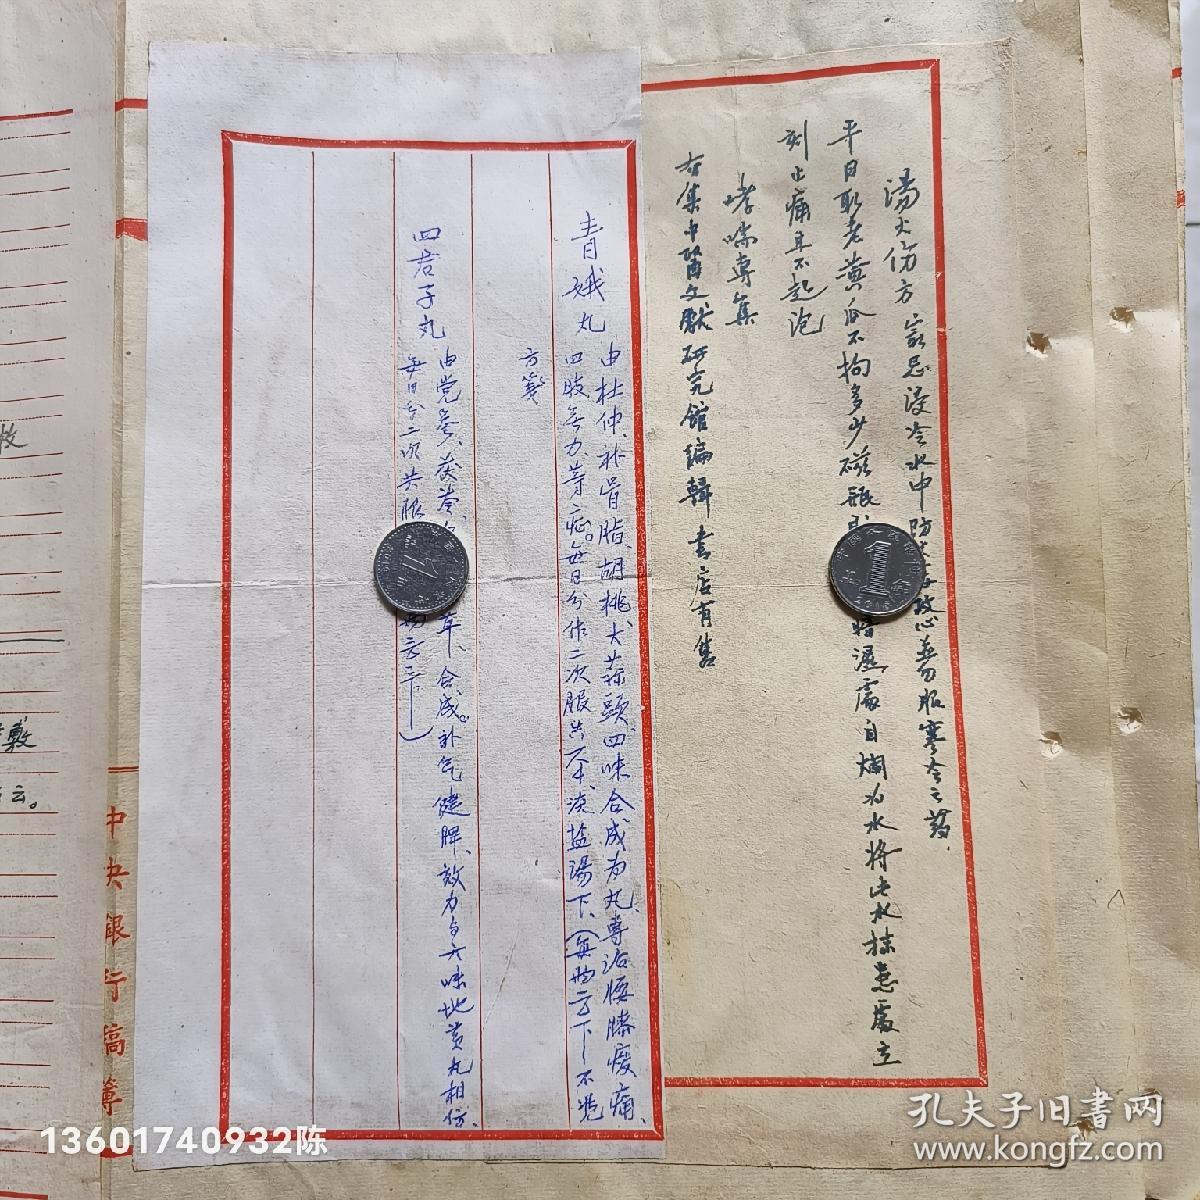 湯火伤方 最忌浸冷水中防火毒攻心并勿服寒冷之药
平日取老黄瓜不拘多少磁瓶
将湿處自烂为水将此水抹患處立
刻止痛且不起泡
哮喘專集
存集中醫文献研究館編輯 書店有售
青娥丸
由杜仲、补骨脂、胡桃、大蒜頭、四味合成为丸、專治腰膝痠痛、
四肢無力等症。每日分作二次服共
淡盐湯下、(每
不必
方箋
四君子丸
由党参、茯苓、
草、合成。补气健脾、效力与六味地黄丸相仿、
每日分二次共服
中央銀行稿簿
敷
云。
13601740932陈
孔夫子旧书网
www.kongfz.com